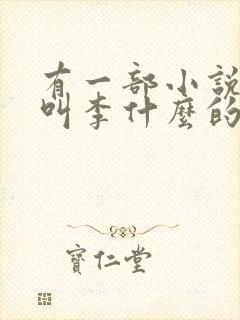 有一部小說
叫李什麼的
寶仁堂